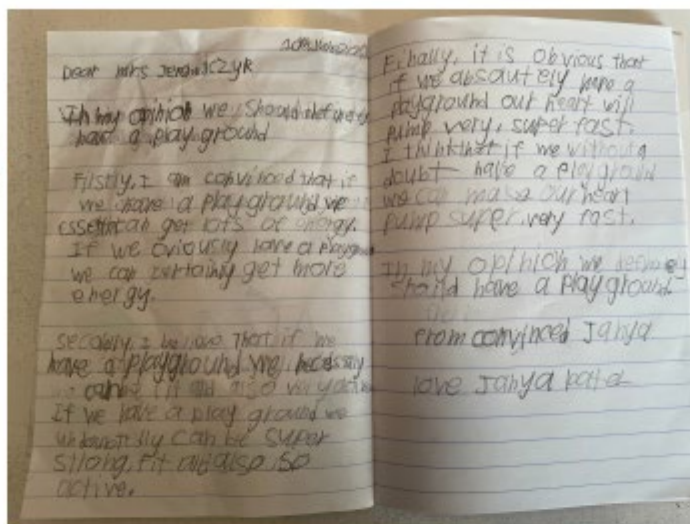 Dear mrs
In my opinion we should
have a play ground
Firstly, I am convinced that if
we have a playground we
can get lots of energy.
If we oviously have a
we can certainly get more
energy.
I believe that if we
have a playground we
also
If we have a play ground we
can be super
strong, fit and also so
active.
Finally, it is obvious that
if we absautely have a
playground our heart will
pump very, super fast.
I think that if we without a
doubt have a playground
we can make our heart
pump super, very fast.
In my opinion we
should have a playground.
from convinced Janya
love Janya